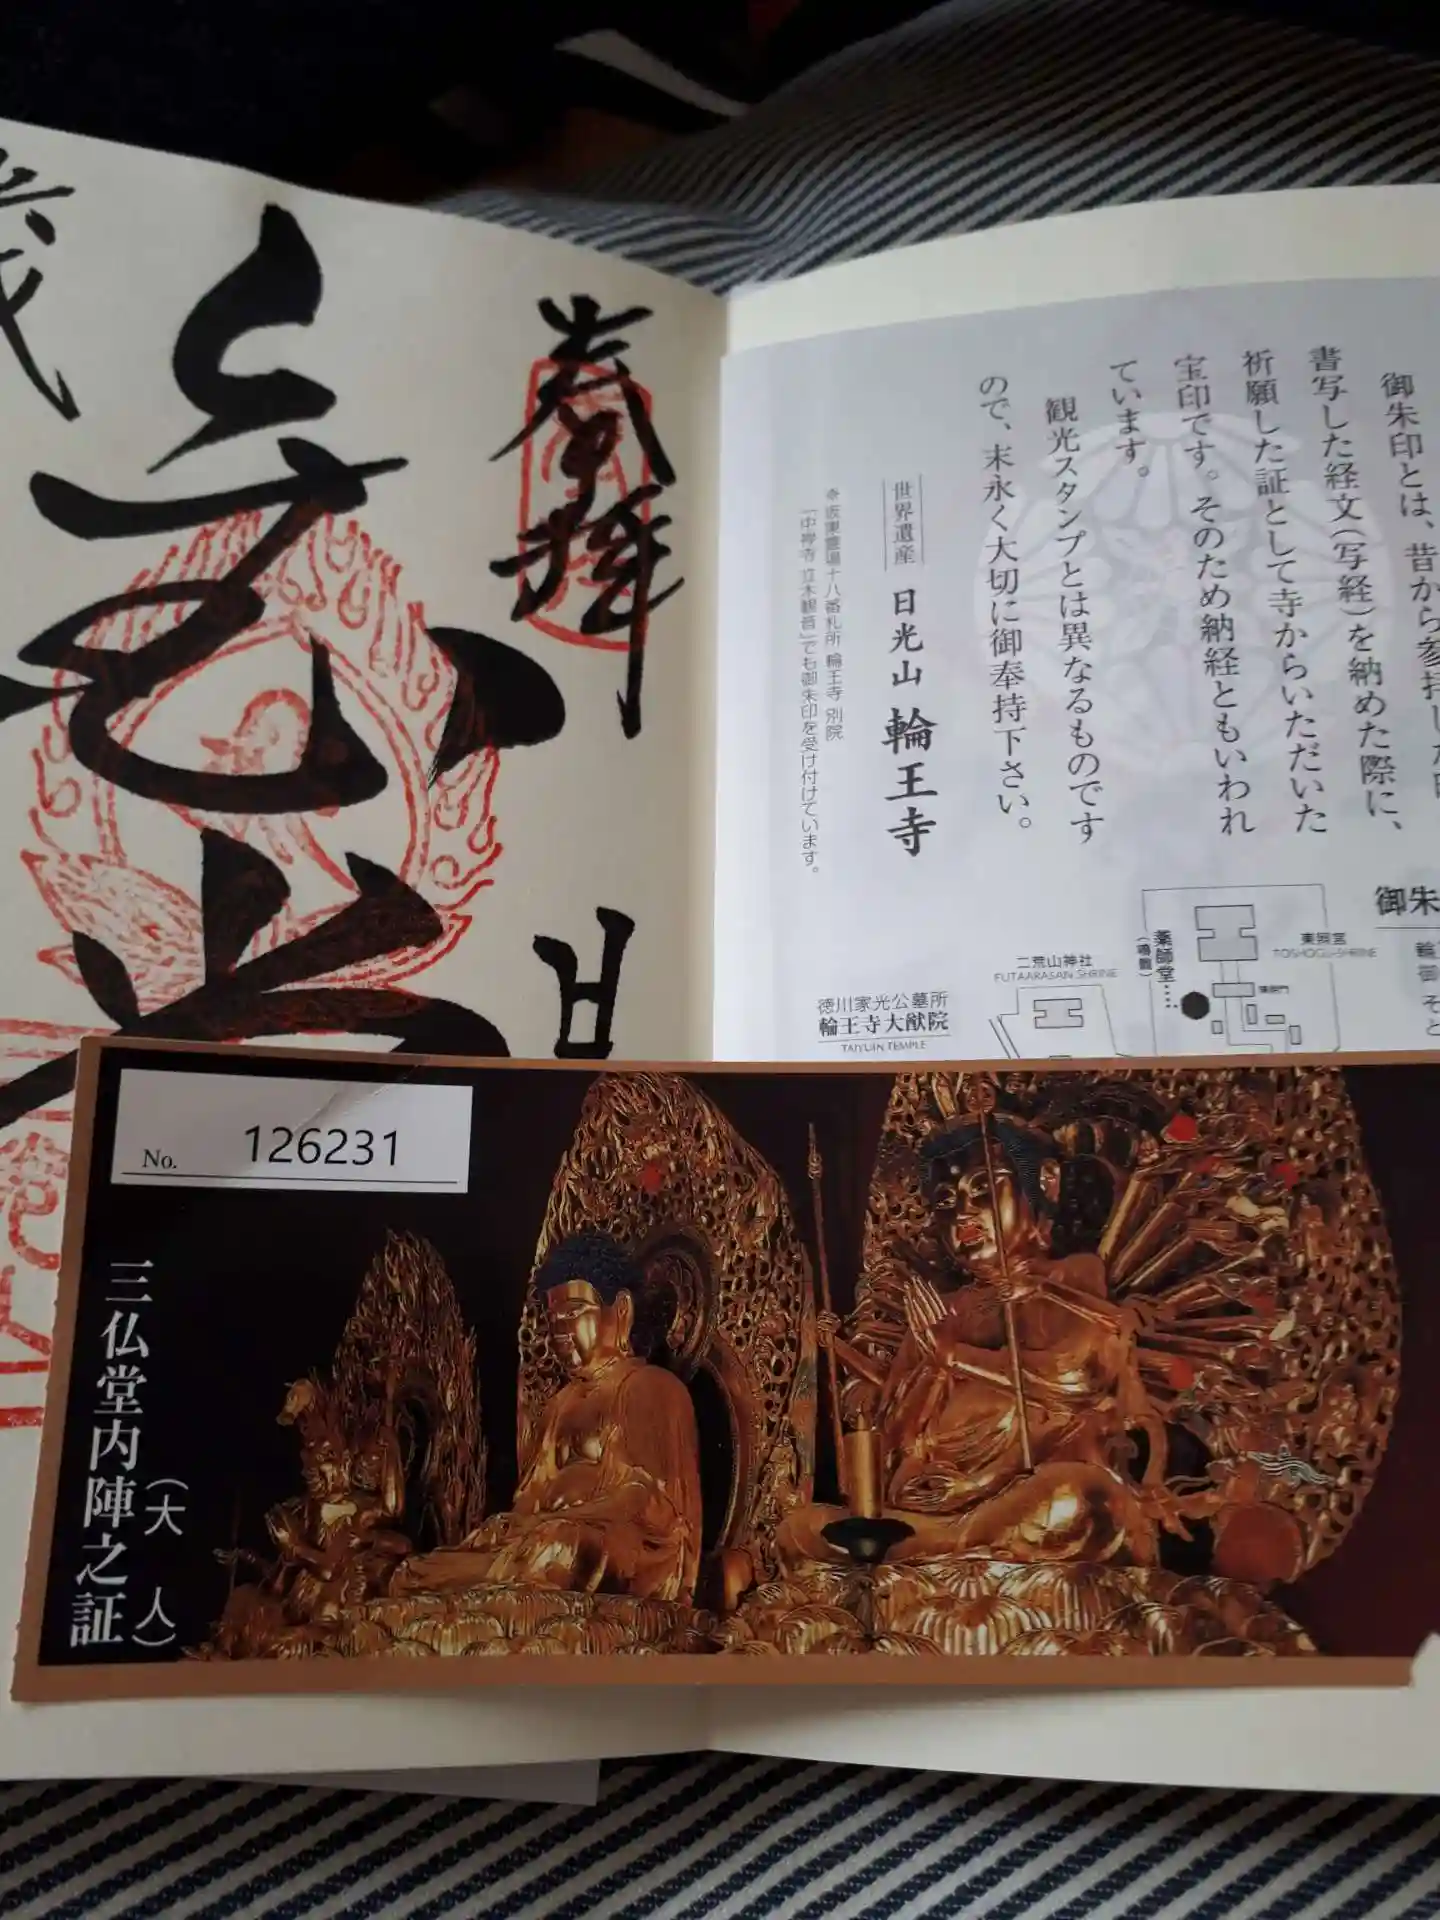 奉拝
日
御朱印とは、昔から参拝し
書写した経文(写経)を納めた際に、
祈願した証として寺からいただいた
宝印です。そのため納経ともいわれ
ています。
観光スタンプとは異なるものです
ので、末永く大切に御奉持下さい。
世界遺産 日光山 輪王寺
※坂東霊場十八番札所 輪王寺 別院
「中禅寺 立木観音」でも御朱印を受け付けています。
御朱
輪
御
そ
と
東照宮
TOSHOGU-SHRINE
薬師堂
(鳴龍)
二荒山神社
FUTAARASAN SHRINE
徳川家光公墓所
輪王寺大猷院
TAIYUIN TEMPLE
No. 126231
三仏堂内陣之証
(大人)